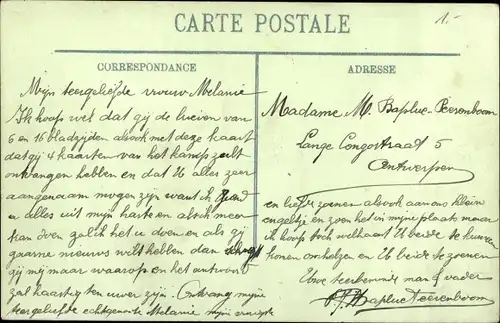 CARTE POSTALE
1.-
CORRESPONDANCE
Mijn teergeliefde vrouw Melanie
Ik hoop wel dat gij de brieven van
6 en 16 bladzijden alsook met deze kaart
dat gij 4 kaarten van het kamp zelt
ontvangen hebben en dat U alles zeer
aangenaam mogen zijn want ik
en alles uit mijn harte en alsook meer
kan doen gelijk het u doen en als gij
gaarne nieuws wilt hebben dan
gij mij maar waarop en het antwoord
zal haastig ten uwer zijn. Ontvang mijne
teergeliefde echtgenoote Melanie mijn
ADRESSE
Madame M. Bapluc-Peerenboom
Lange Congostraat 5
Antwerpen
en liefste zoenen alsook aan ons klein
engeltje en zoen het in mijne plaats
ik hoop toch welhaast U beide te kunnen
komen omhelzen en U beide te zoenen
Uwe teerbeminde man & vader
Bapluc Peerenboom